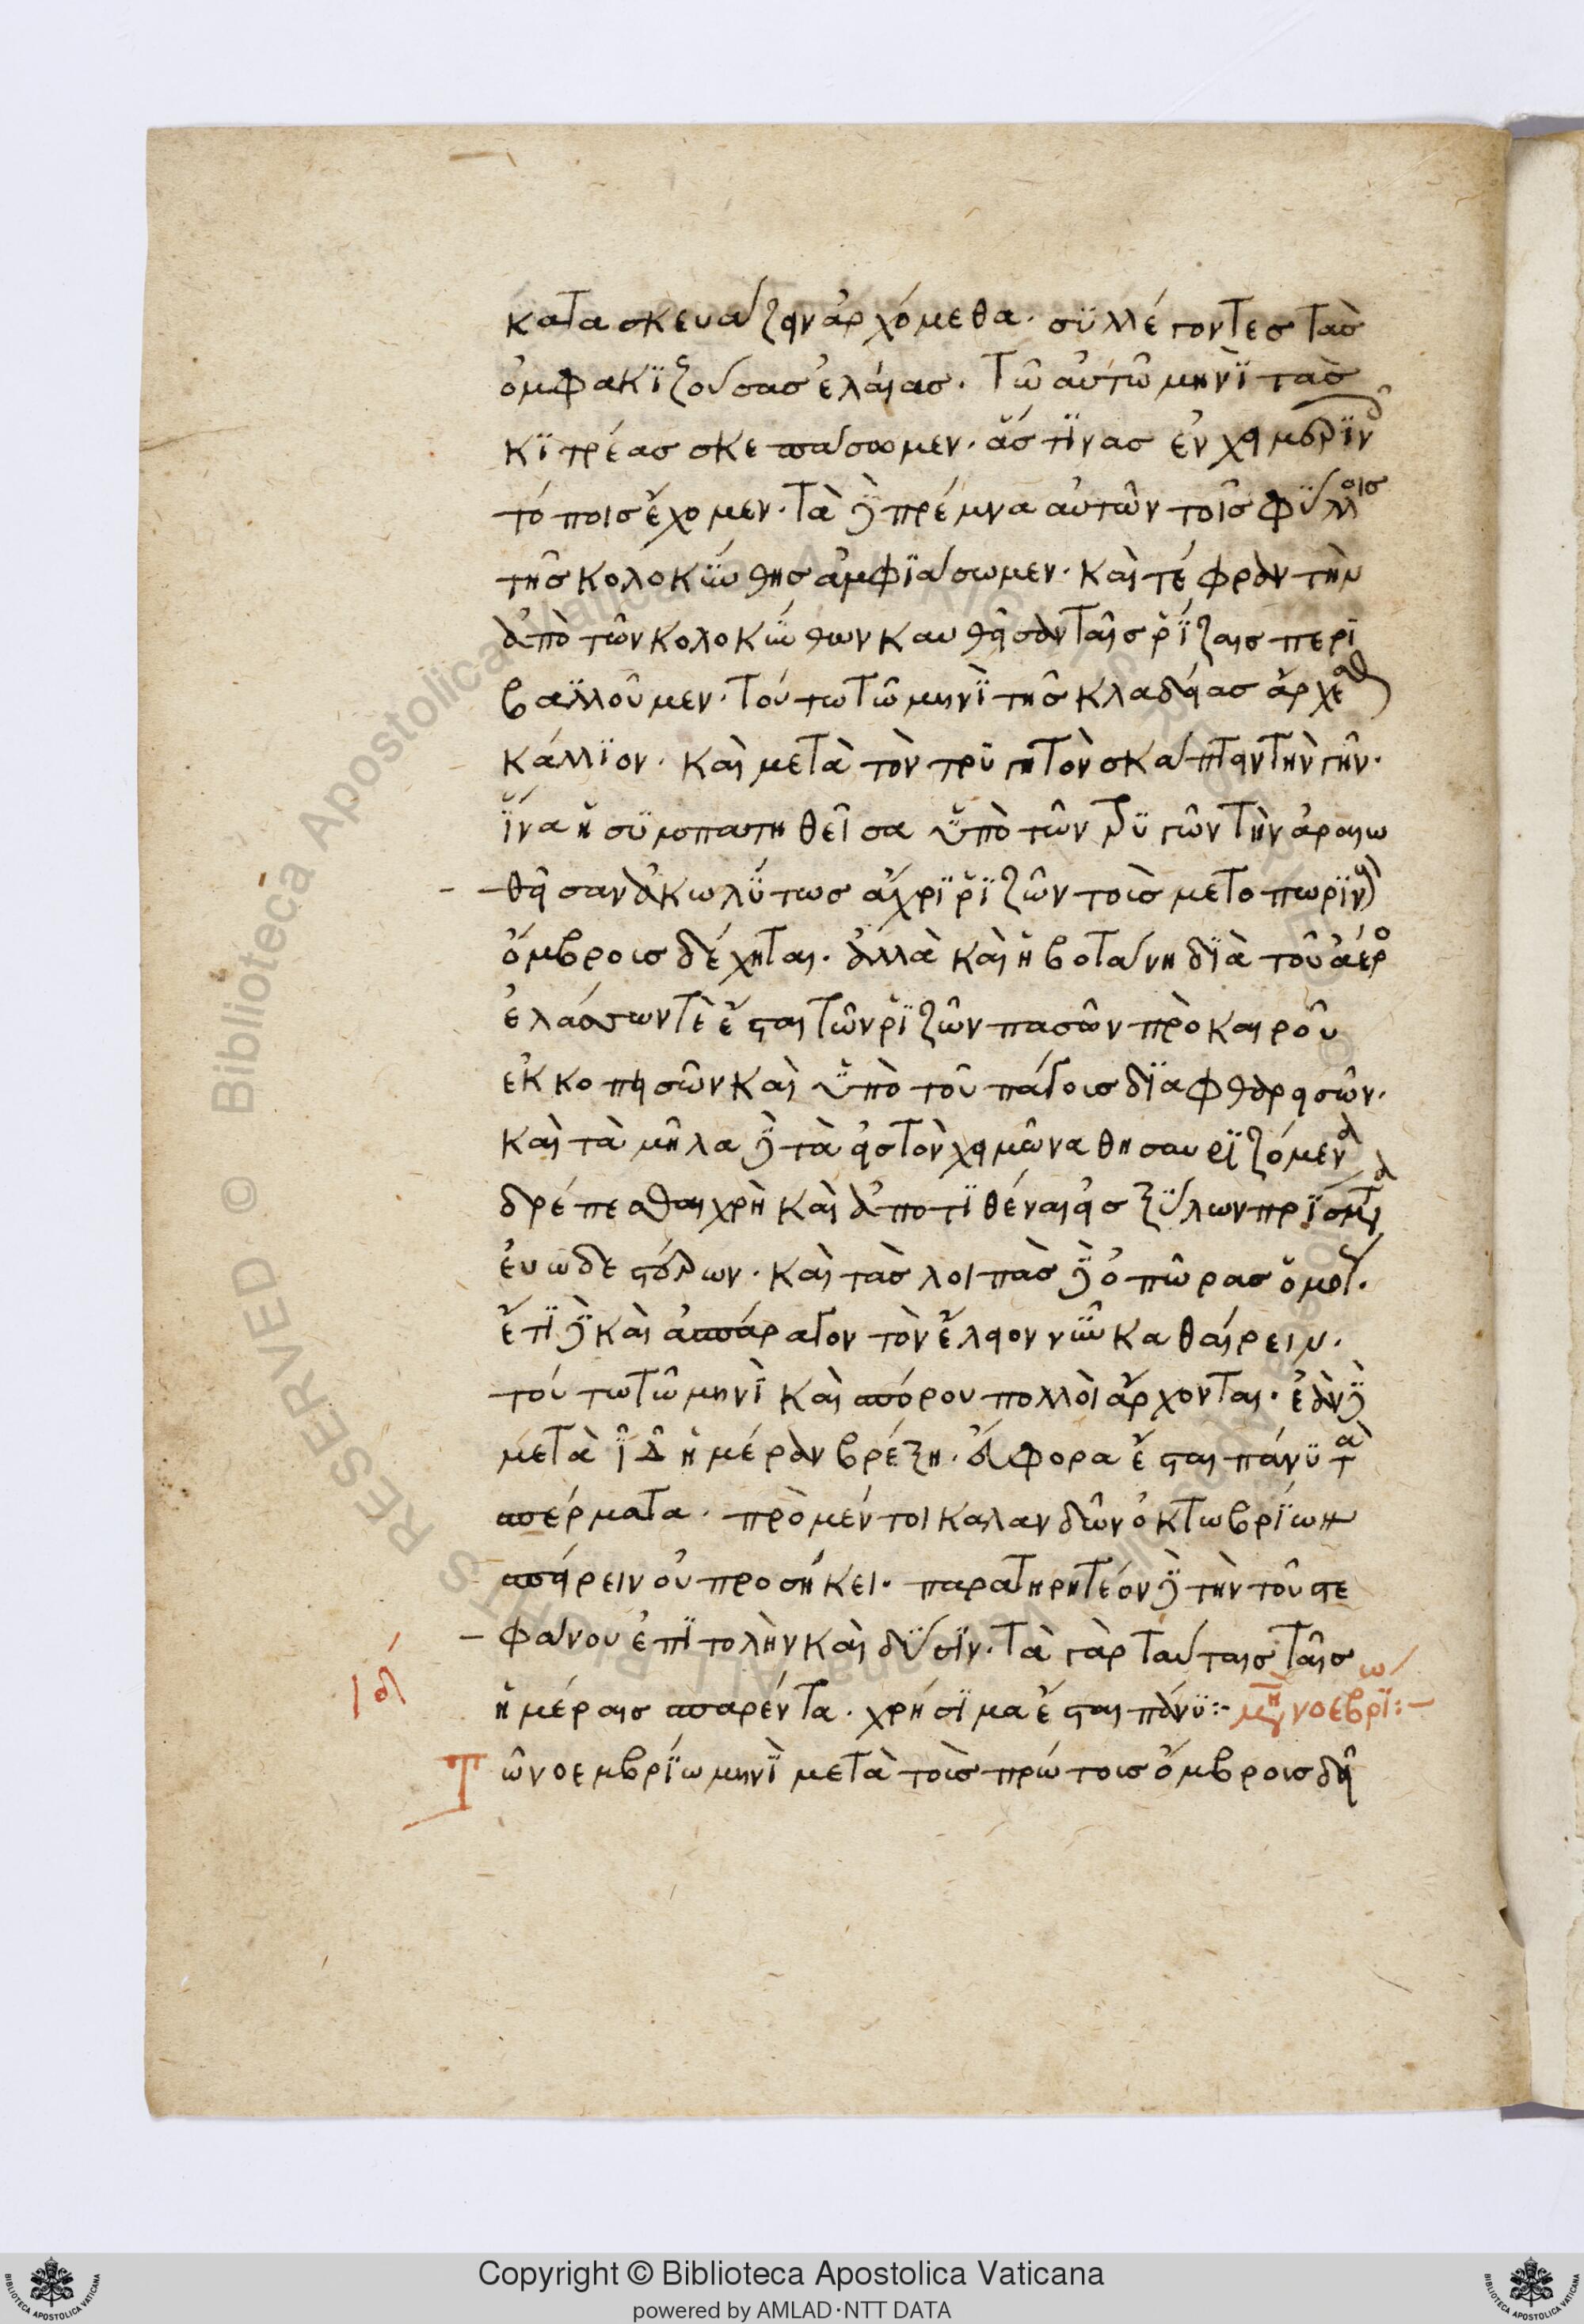 κατασκευάζειν ἀρχόμεθα. συλλέγοντες τὰς
ὀμφακϊζούσας ἐλαίας. Τῶ αὐτῶ μηνῒ τὰς
κϊτρέας σκεπάσωμεν. ἅς τϊνας ἐν χειμερϊν
τόποις ἔχομεν. Τὰ δὲ πρέμνα αὐτῶν τοῖς φύλλοις
τῆς κολοκύνθης ἀμφϊάσωμεν. καὶ τέφραν τὴν
ἀπὸ τῶν κολοκύνθων καυθεῖσαν ταῖς ῥΐζαις περι
βαλλοῦμεν. Τούτω τῶ μηνῒ τῆς κλαδείας ἄρχεσθ
κάλλϊον. καὶ μετὰ τὸν τρυγητὸν σκάπτειν τὴν γῆν.
ἵνα ἡ συμπατηθεῖσα ὑπὸ τῶν τρυγώντων ἀραιω
θεῖσαν ἀκωλύτως ἄχρϊ ῥϊζῶν τοὶς μετοπωρϊν
ὄμβροις δέχηται. ἀλλὰ καὶ ἡ βοτάνη δϊὰ τοῦ ἀέρο
ἐλάσσων τὲ ἔσται τῶν ῥϊζῶν πασῶν πρὸ καιροῦ
ἐκκοπεισῶν καὶ ὑπὸ τοῦ πάγους δϊαφθαρεισῶν.
καὶ τὰ μῆλα δὲ τὰ εἰς τὸν χειμῶνα θησαυρϊζόμενα
δρέπεσθαι χρὴ καὶ ἀποτϊθέναι εἰς ξύλων πρΐσματα
εὐωδεστέρων. καὶ τὰς λοιπὰς δὲ ὀπώρας ὁμοί.
ἔτϊ δὲ καὶ ἀσπάραγον τὸν ἕλειον νῦν καθαίρειν.
τούτω τῶ μηνῒ καὶ σπόρου πολλοὶ ἄρχονται. ἐὰν δὲ
μετὰ ῑδ̄ ἡμέραν βρέξη. εὔφορα ἔσται πάνυ τὰ
σπέρματα. πρὸ μέντοι καλανδῶν ὀκτωβρΐων
σπείρειν οὐ προσήκει. παρατηρητέον δὲ τὴν τοῦ στε
φάνου ἐπϊτολὴν καὶ δύσϊν. Τὰ γὰρ ταύταις ταῖς
ἡμέραις σπαρέντα. χρήσϊμα ἔσται πάνυ:- μηνῒ νοεβρΐω:-
ιαʹ
Τῶ νοεμβρΐω μηνῒ μετὰ τοὺς πρώτους ὄμβρους δεῖ
Copyright © Biblioteca Apostolica Vaticana
powered by AMLAD·NTT DATA